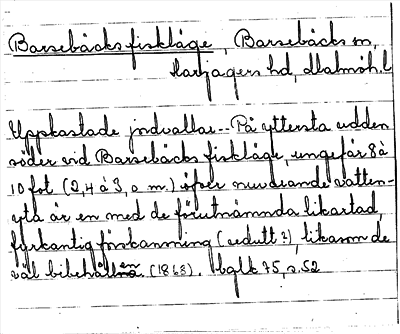 Barsebäcks fiskläge, Barsebäcks sn,
Harjagers hd, Malmöh.l
Uppkastade jordvallar.- På yttersta udden
söder vid Barsebäcks fiskläge, ungefär 8 à
10 fot (2,4 à 3,0 m.) öfver nuvarande vatten-
yta är en med de förutnämnda likartad,
fyrkantig förskansning (redutt?), liksom de
väl bibehållen (1863). bglk 75, s. 52